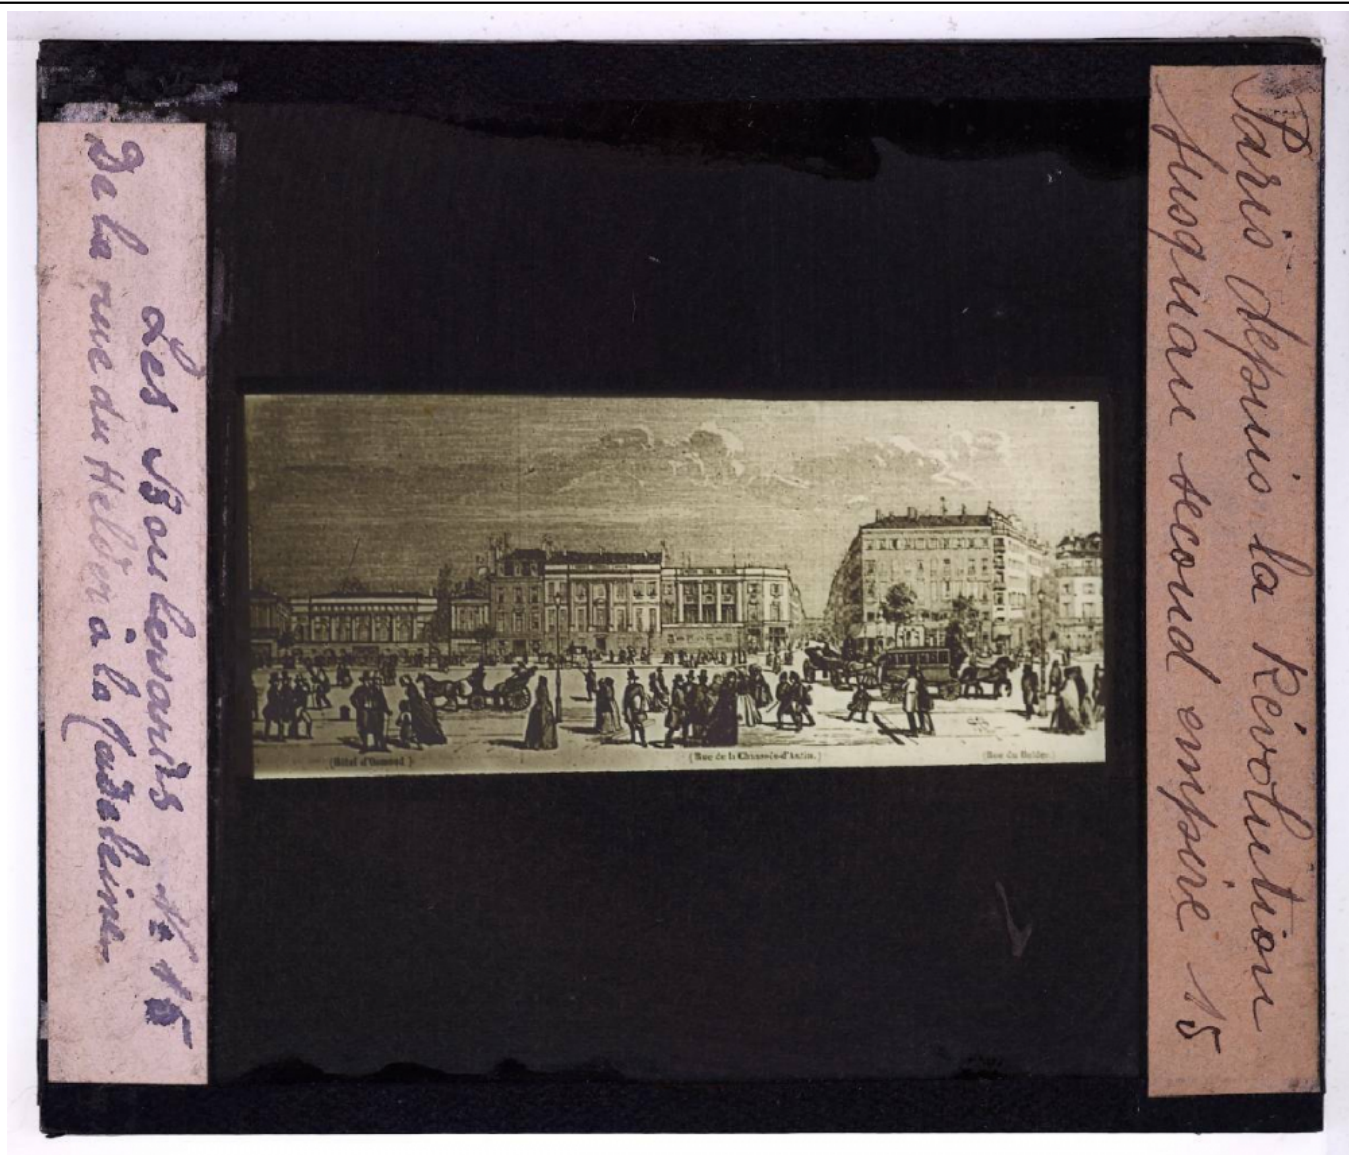 Les Boulevards No 15
De la rue du Helder à la Madeleine
(Hôtel d'Osmond)
(Rue de la Chaussée-d'Antin.)
(Rue du Helder)
Paris depuis la Révolution
jusqu'au second empire 15